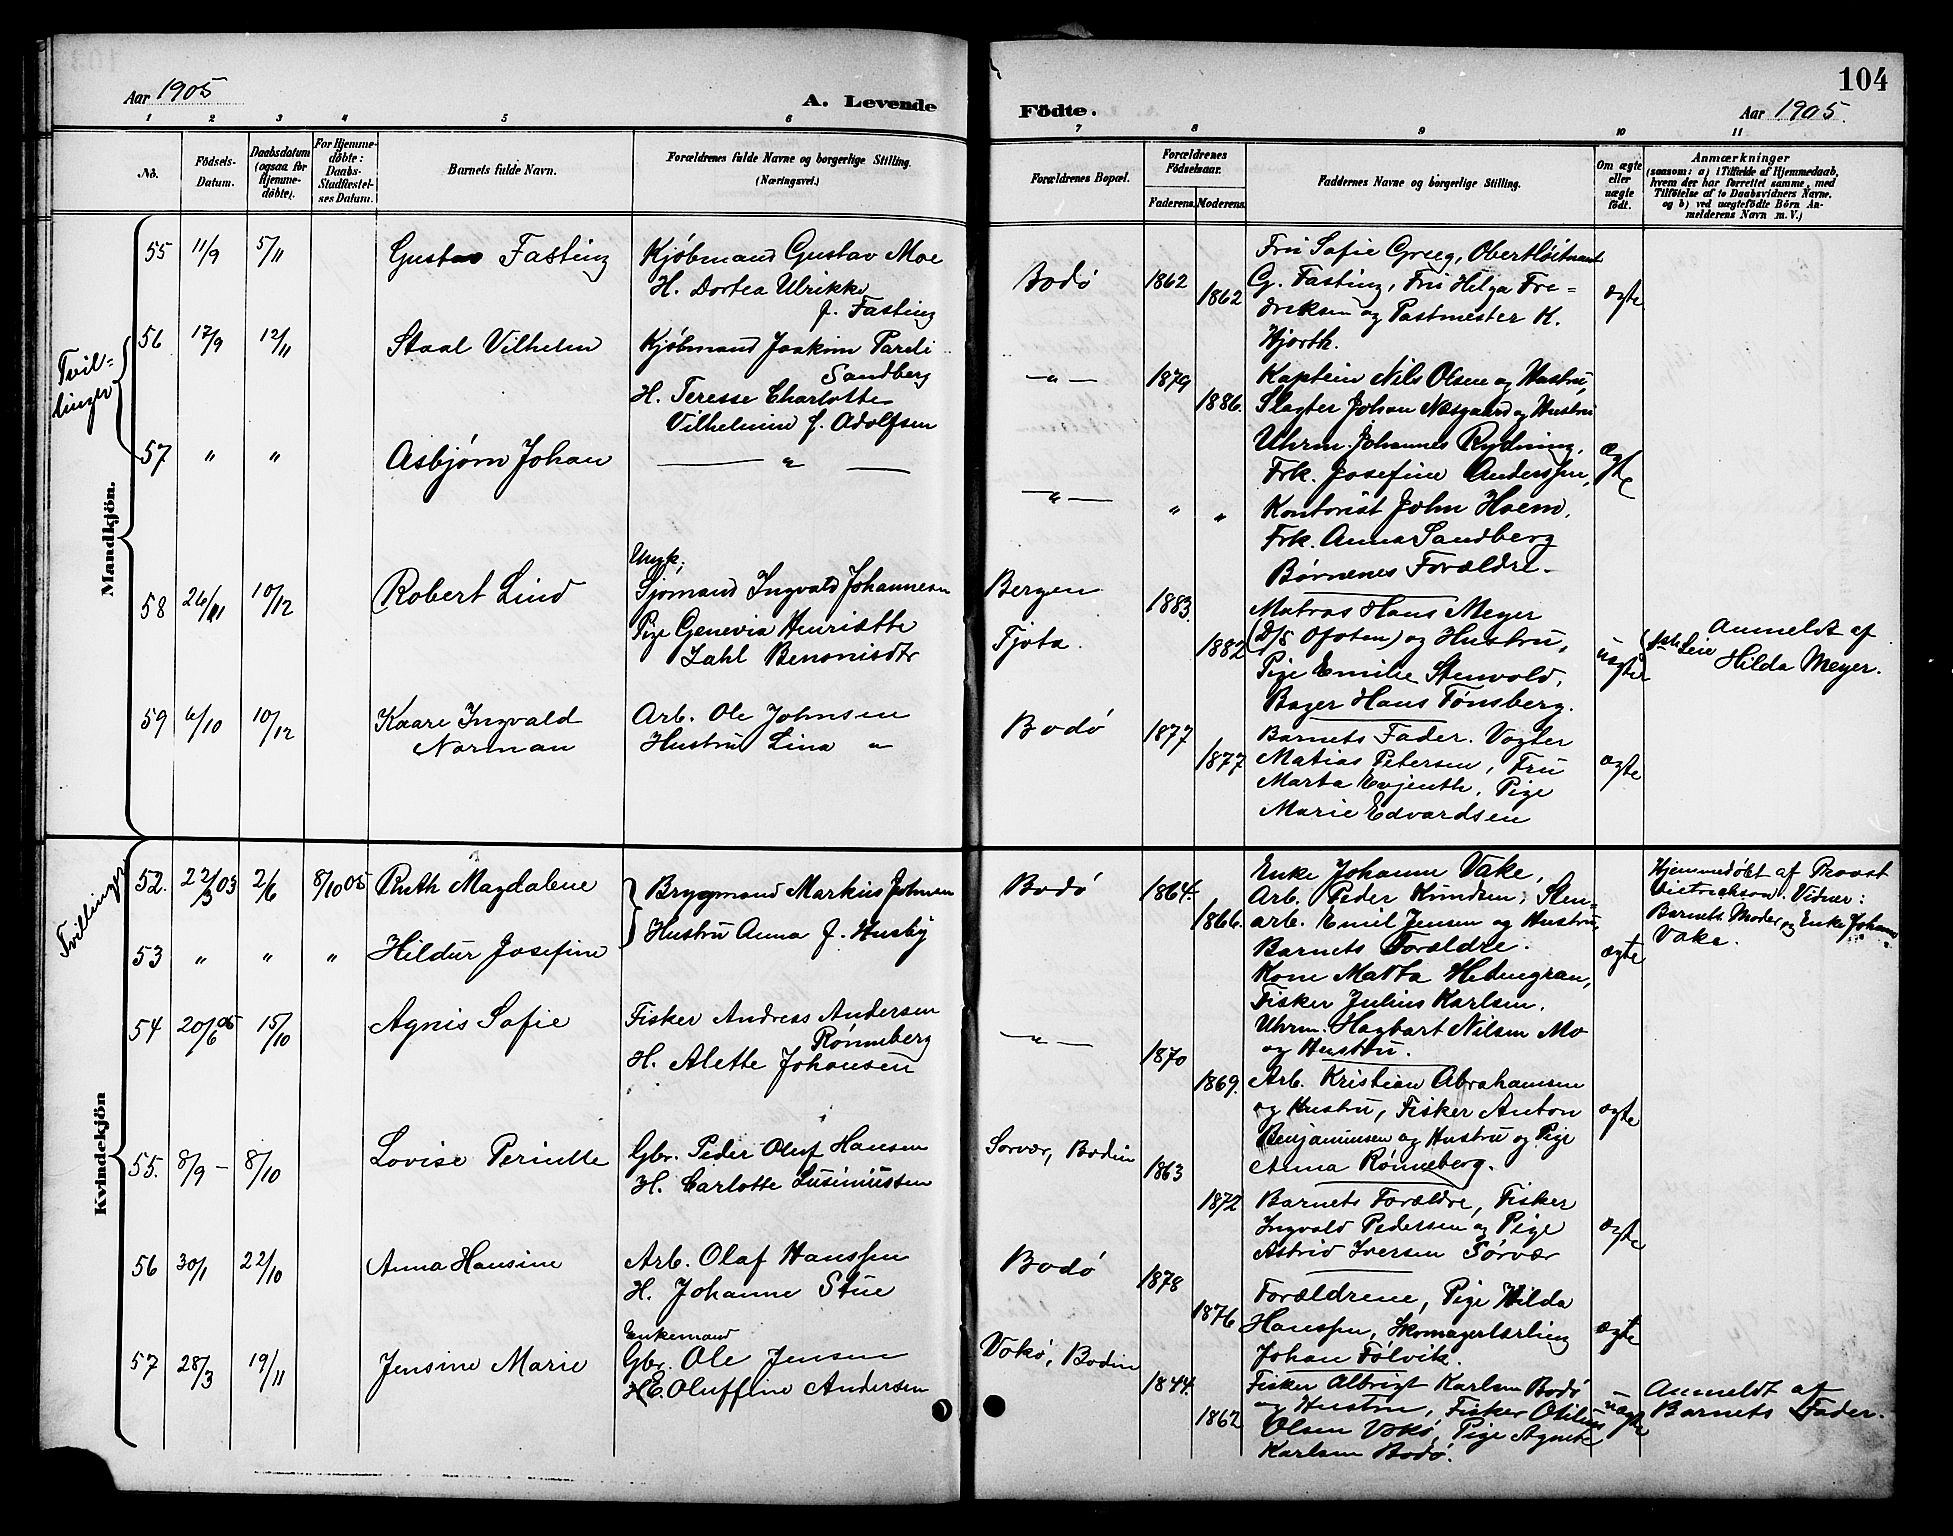 104
Aar 1905
A. Levende
Födte.
Aar 1905.
1 2 3 4 5 6 7 8 9 10 11
No.
Födsels-
Datum.
Daabsdatum
(ogsaa for
Hjemme-
döbte).
For Hjemme-
döbte:
Daabs-
Stadfæstel-
ses Datum.
Barnets fulde Navn.
Forældrenes fulde Navne og borgerlige Stilling.
(Næringsvei.)
Forældrenes Bopæl.
Forældrenes
Födselsaar.
Faderens. Moderens.
Faddernes Navne og borgerlige Stilling.
Om ægte
eller
uægte
födt.
Anmærkninger
(saasom: a) i Tilfælde af Hjemmedaab,
hvem der har forrettet samme, med
Tilföielse af to Daabsvidners Navne,
og b) ved uægtefödte Börn An-
melderens Navn m. V.)
Mandkjön.
Tvil-
linger
55 11/9 5/11 Gustav Fasting
Kjøbmand Gustav Moe
H. Dortea Ulrikke
f. Fasting
Bodø 1862 1862
Fru Sofie Greeg, Oberstløitnant
G. Fasting, Fru Helga Fre-
driksen og Postmester K.
Hjorth.
ægte
56 17/9 12/11 Staal Vilhelm
Kjøbmand Joakim Pareli
Sandberg
H. Teresse Charlotte
Vilhelmine f. Adolfsen
-"- 1879 1886.
Kaptein Nils Olsen og Hustru,
Slagter Johan Næsgaard og Hustru
57 " " Asbjørn Johan
— " —
-"- " "
Uhrm. Johannes Rydning,
Frk. Josefine Anderssen,
Kontorist John Hoem,
Frk. Anna Sandberg
Børnenes Forældre.
ægte
58 26/11 10/12 Robert Lind
Ungk.
Sjømand Ingvald Johannesen
Pige Genevia Henriette
Zahl Benonisdtr
Bergen
Tjøta.
1883. 1882
Matros Hans Meyer
(D/S Ofoten) og Hustru,
Pige Emilie Stenvold,
Bager Hans Tønsberg.
uægte
Anmeldt af
Hilda Meyer.
59 6/10 10/12 Kaare Ingvald
Norman
Arb. Ole Johnsen
Hustru Lina "
Bodø 1877 1877
Barnets Fader. Vogter
Matias Petersen, Fru
Marta Evjenth, Pige
Marie Edvardsen
ægte
Kvindekjön
Tvillinger
52. 22/3 03 2/6 8/10 05 Ruth Magdalene
Brygmand Markus Johnsen
Hustru Anna f. Husby
Bodø 1864. 1866.
Enke Johanne Vake,
Arb. Peder Knudsen, Sten-
arb. Emil Jensen og Hustru,
Barnets Forældre.
Hjemmedøbt af Provst
Dietrichson. Vidner:
Barnets Moder og Enke Johanne
Vake.
53 " " " Hildur Josefine
Kone Marta Hedengran,
Fisker Julius Karlsen.
Uhrm. Hagbart Nilsen Mo
og Hustru.
ægte
54 20/6 05 15/10 Agnis Sofie
Fisker Andreas Andersen
Rønneberg
H. Alette Johansen
-"- 1870 1869.
Arb. Kristian Abrahamsen
og Hustru, Fisker Anton
Benjaminsen og Hustru og Pige
Anna Rønneberg.
ægte
55. 8/9 - 8/10 Lovise Pernille
Gbr. Peder Oluf Hansen
H. Carlotte
Sørvær, Bodin 1863 1872
Barnets Forældre, Fisker
Ingvald Pedersen og Pige
Astrid Iversen Sørvær
ægte
56 30/1 22/10 Anna Hansine
Arb. Olaf Hanssen
H. Johanne Stue
Bodø 1878 1876
Forældrene, Pige Hilda
Hanssen, Skomagerlærling
Johan Følvik.
ægte
57 28/3 19/11 Jensine Marie
Enkemand
Gbr. Ole Jensen
E. Oluffine Andersen
Vokø, Bodin 1844. 1862
Fisker Albrigt Karlsen Bodø
og Hustru, Fisker Otilius
Olsen Vokø, Pige Agnete
Karlsen Bodø.
uægte
Anmeldt af
Barnets Fader.